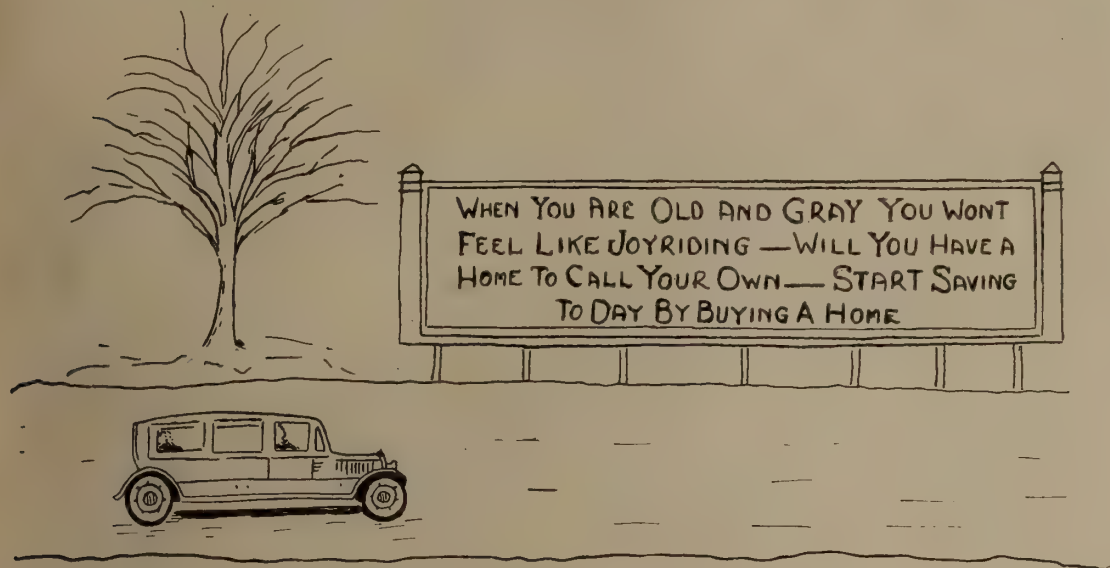 WHEN YOU ARE OLD AND GRAY YOU WONT
FEEL LIKE JOYRIDING — WILL YOU HAVE A
HOME TO CALL YOUR OWN — START SAVING
TO DAY BY BUYING A HOME